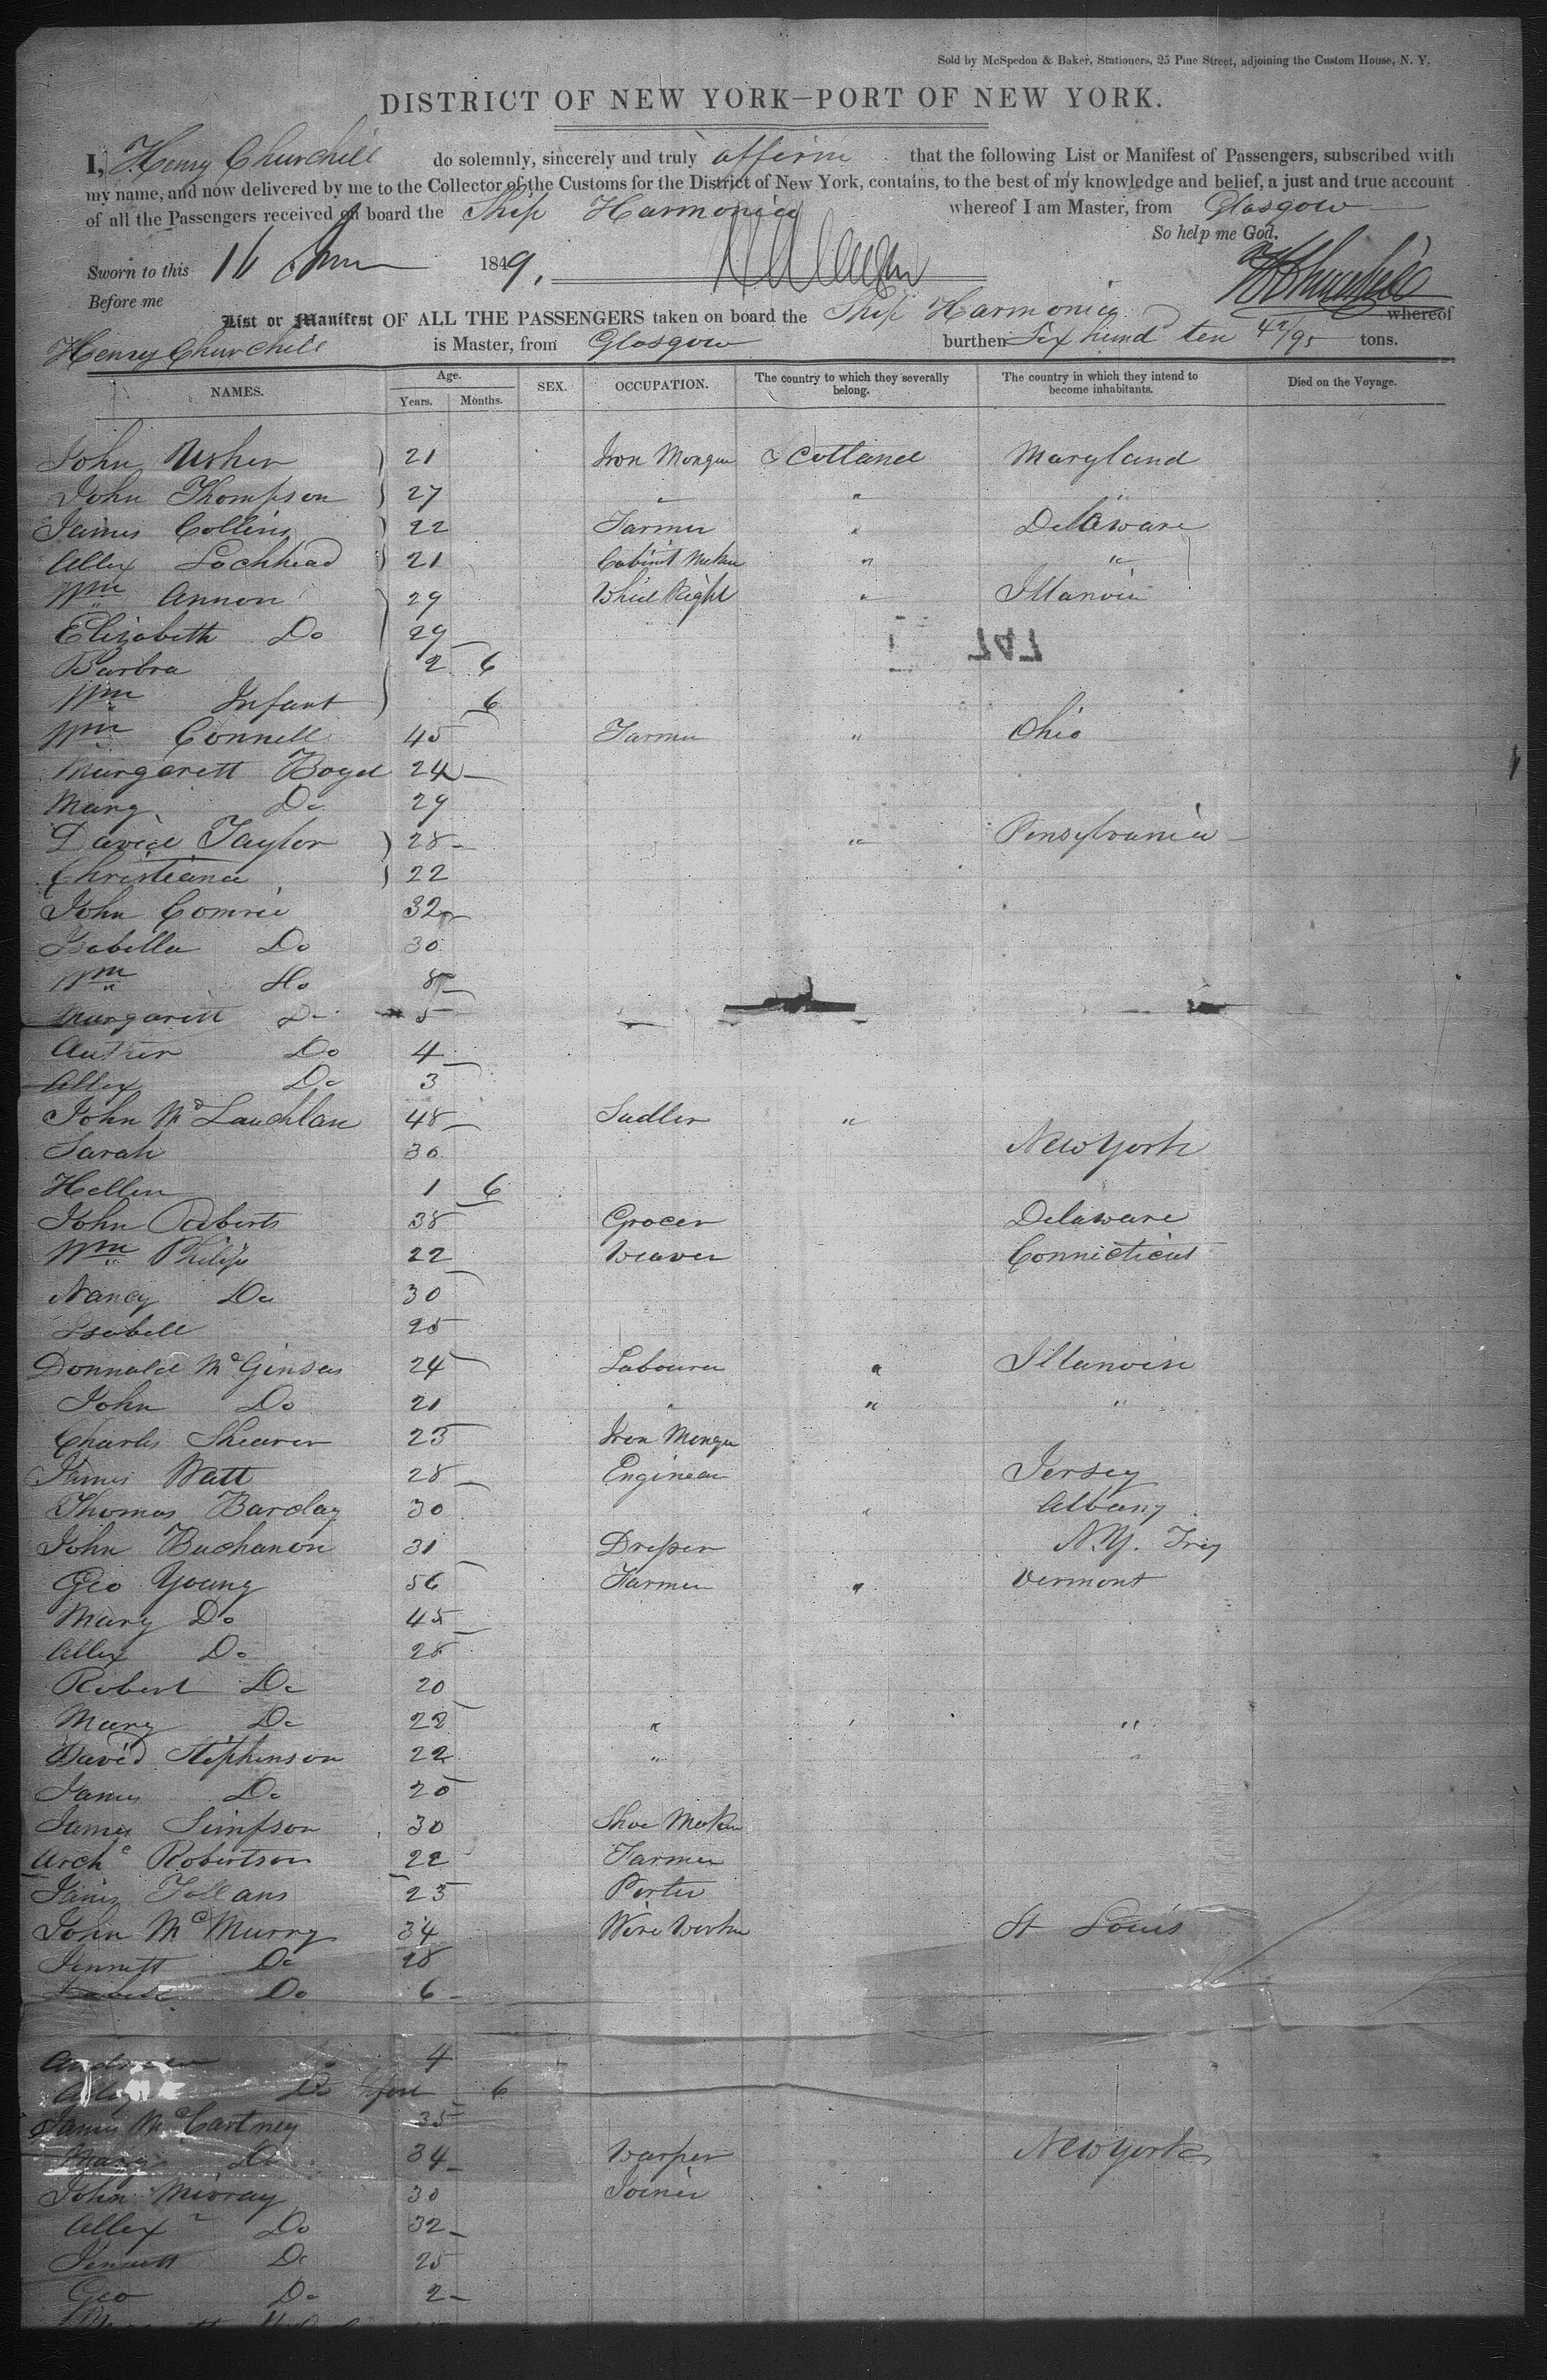 Sold by McSpedon & Baker, Stationers, 25 Pine Street, adjoining the Custom House, N. Y.
DISTRICT OF NEW YORK—PORT OF NEW YORK.
I, Henry Churchill do solemnly, sincerely and truly affirm that the following List or Manifest of Passengers, subscribed with
my name, and now delivered by me to the Collector of the Customs for the District of New York, contains, to the best of my knowledge and belief, a just and true account
of all the Passengers received on board the Ship Harmonica whereof I am Master, from Glasgow
So help me God.
Sworn to this 16 1849,
Before me
H Churchill
List or Manifest OF ALL THE PASSENGERS taken on board the Ship Harmonica whereof
Henry Churchill is Master, from Glasgow burthen Six hund ten 42/95 tons.
NAMES. Age. Years. Months. SEX. OCCUPATION. The country to which they severally belong. The country in which they intend to become inhabitants. Died on the Voyage.
John Usher 21 Iron Monger Scotland Maryland
John Thompson 27 " " "
James Collins 22 Farmer " Delaware
Allex Lochhead 21 Cabinit Maker " "
Wm Annon 29 Whiel Right " Illanois
Elizabeth Do 29
747
Barbra 2 6
Wm Infant 6
Wm Connell 45 Farmer " Ohio
Margarett Boyd 24
Mary Do 29
David Taylor 28 " Pensylvania
Christiana 22
John Comrie 32
Isabella Do 30
Wm Do 8
Margarett Do 5
Auther Do 4
Allex Do 3
John McLauchlan 48 Sadler "
Sarah 30 New York
Hellen 1 6
John Roberts 38 Grocer Delaware
Wm Philips 22 Weaver Connicticut
Nancy Do 30
Isabell 25
Donnald McGinsas 24 Labourer " Illanoise
John Do 21 " " "
Charles Shearer 23 Iron Monger
James Watt 28 Enginear Jersey
Thomas Barclay 30 " Albany
John Buchanon 31 Draper N.Y. Troy
Geo Young 56 Farmer " Vermont
Mary Do 45
Allex Do 28
Robert Do 20
Mary Do 22 " " "
David Stephinson 22 " "
James Do 20
James Simpson 30 Shoe Maker
Archd Robertson 22 Farmer
James 23 Porter
John McMurry 34 Wire Worker St Louis
Jennett Do 28
Do 6
Andrew 4
Do Infant 6
James McCartney 35
Mary Do 34 Warper New York
John Mirray 30 Joiner
Allex Do 32
Jennett Do 25
Geo Do 2